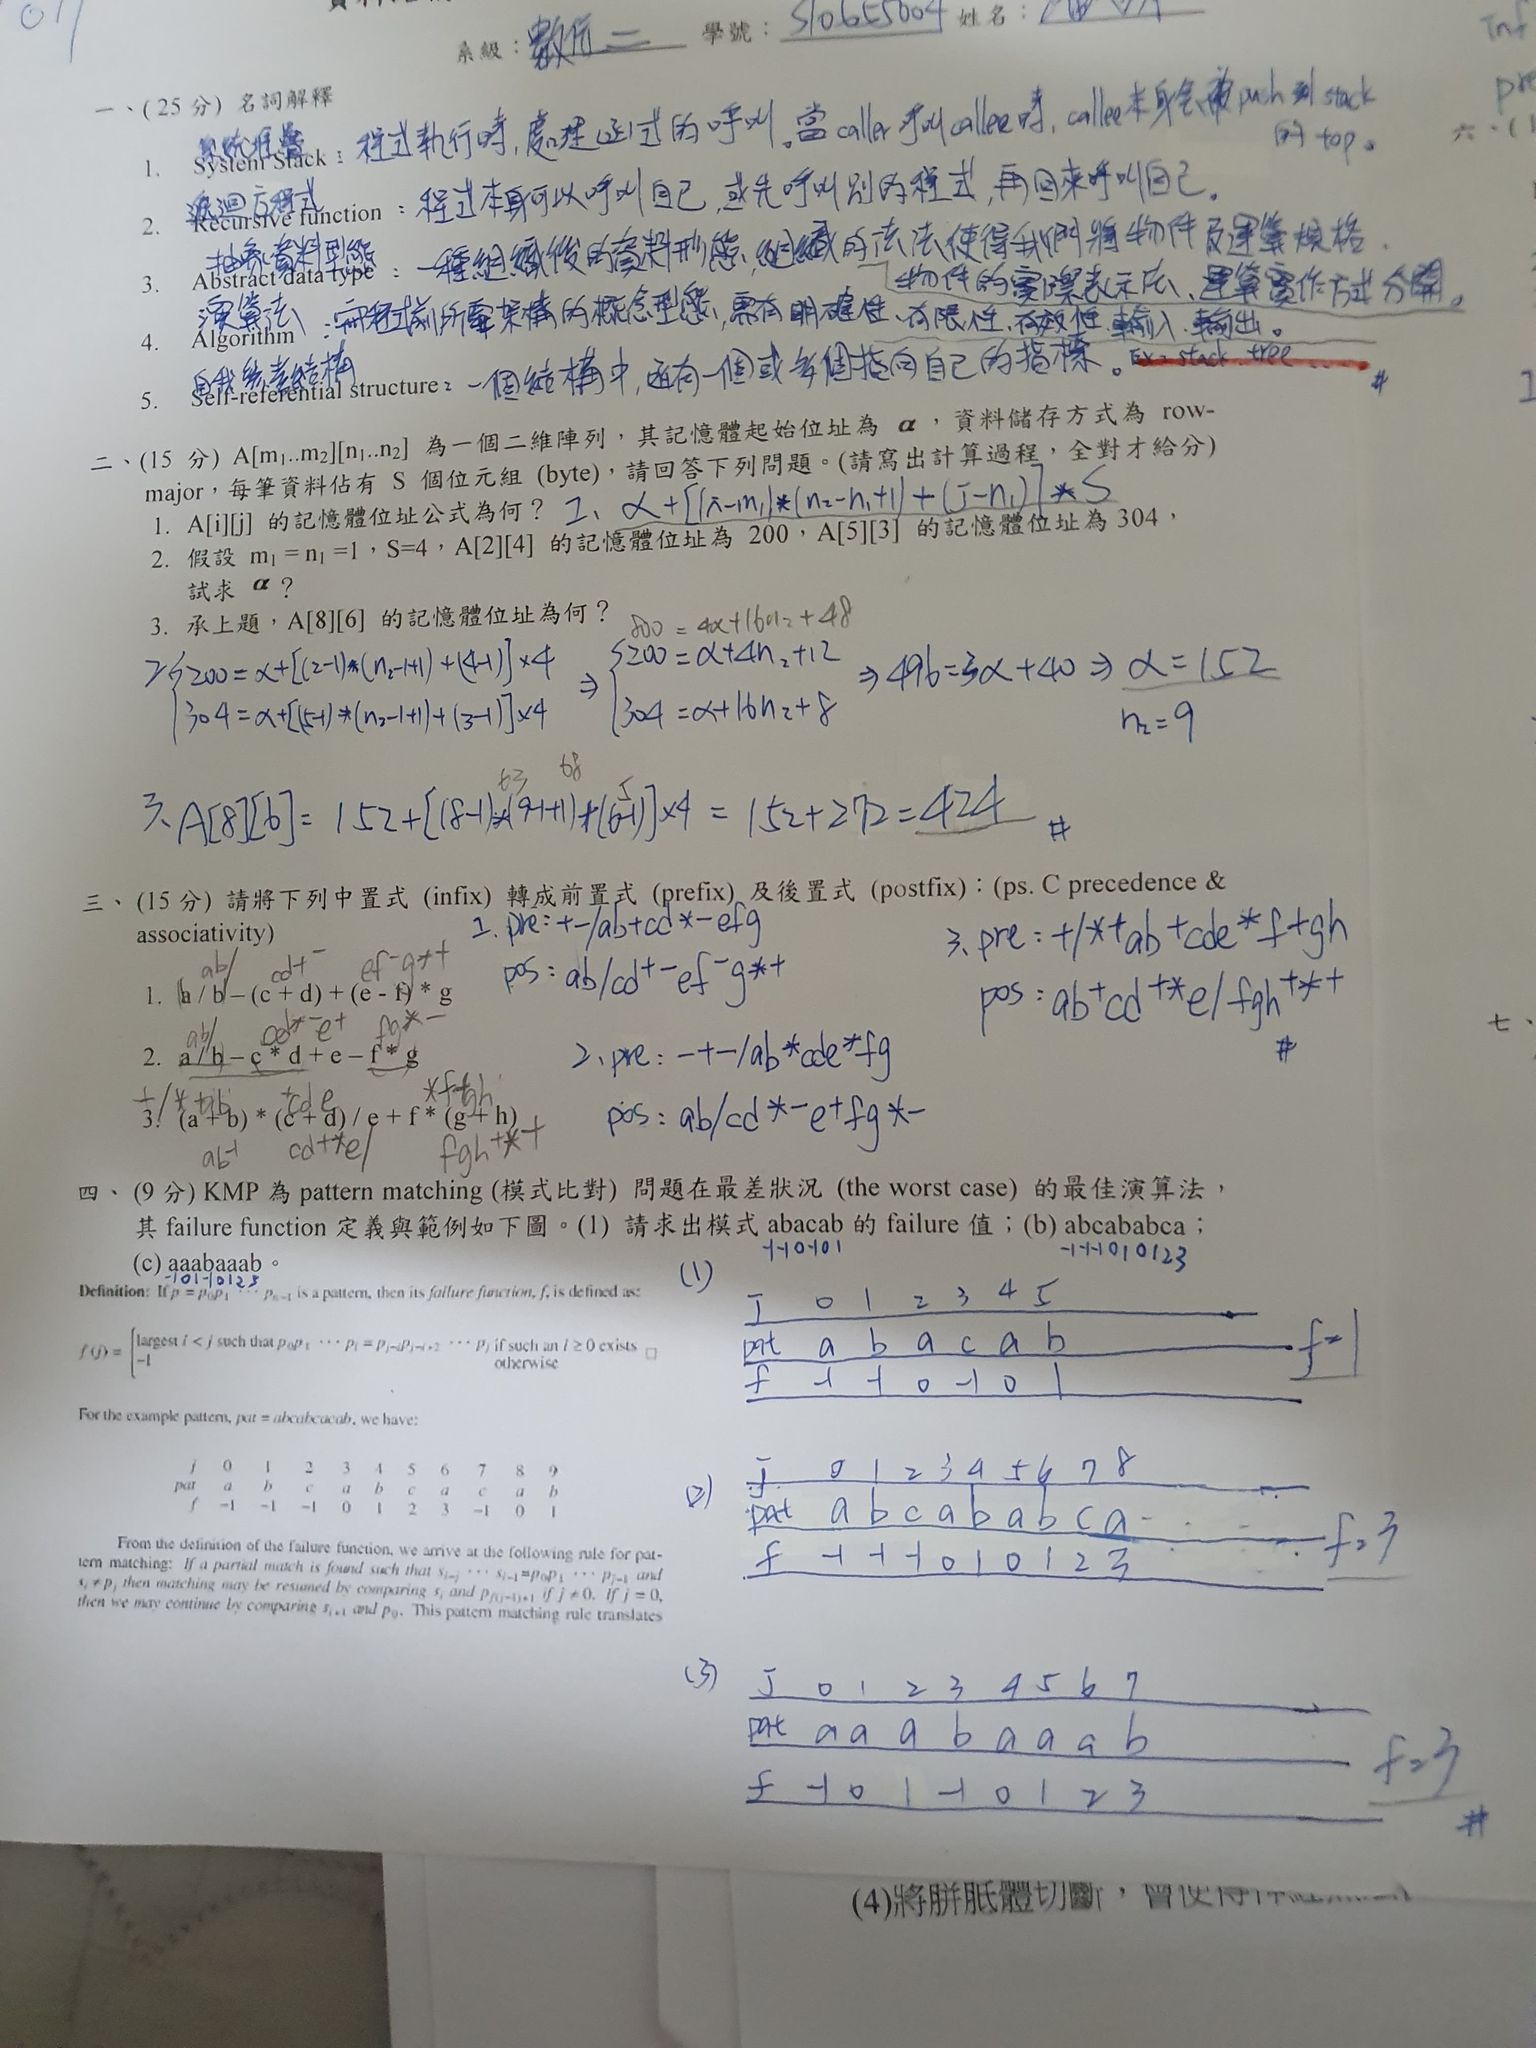 系級：數位二 學號：S10655004 姓名：
一、(25 分) 名詞解釋
系統堆疊
1. System Stack：程式執行時，處理函式的呼叫。當caller呼叫callee時，callee本身會被push到stack
的top。
遞迴方程式
2. Recursive function：程式本身可以呼叫自己，或先呼叫別的程式，再回來呼叫自己。
抽象資料型態
3. Abstract data type：一種組織後的資料形態，組織的方法使得我們將物件及運算規格、
物件的實際表示法、運算實作方式分開。
演算法
4. Algorithm：寫程式前所需架構的概念型態，需有明確性、有限性、有效性、輸入、輸出。
自我參考結構
5. Self-referential structure：一個結構中，函有一個或多個指向自己的指標。Ex: stack、tree……
#
二、(15 分) A[m₁..m₂][n₁..n₂] 為一個二維陣列，其記憶體起始位址為 α，資料儲存方式為 row-
major，每筆資料佔有 S 個位元組 (byte)，請回答下列問題。(請寫出計算過程，全對才給分)
1. A[i][j] 的記憶體位址公式為何？ 1、α+[(i-m₁)*(n₂-n₁+1)+(j-n₁)]*S
2. 假設 m₁ = n₁ =1，S=4，A[2][4] 的記憶體位址為 200，A[5][3] 的記憶體位址為 304，
試求 α？
3. 承上題，A[8][6] 的記憶體位址為何？
800 = 4α+16n₂+48
2、{200=α+[(2-1)*(n₂-1+1)+(4-1)]×4 ⇒ {200=α+4n₂+12 ⇒ 496=3α+40 ⇒ α=152
304=α+[(5-1)*(n₂-1+1)+(3-1)]×4 304=α+16n₂+8 n₂=9
63 68 5
3、A[8][6]= 152+[(8-1)*(9-1+1)+(6-1)]×4 = 152+272=424 #
三、(15 分) 請將下列中置式 (infix) 轉成前置式 (prefix) 及後置式 (postfix)：(ps. C precedence &
associativity)
1. pre: +-/ab+cd*-efg
pos: ab/cd+-ef-g*+
3. pre: +/*+ab+cde*f+gh
pos: ab+cd+*e/fgh+*+
#
ab/ cd+- ef-g*+
1. a / b – (c + d) + (e - f) * g
ab/ cd*-e+ fg*-
2. a / b – c * d + e – f * g
2、pre: -+-/ab*cde*fg
pos: ab/cd*-e+fg*-
+/*+ab +cde *f+gh
3. (a + b) * (c + d) / e + f * (g + h)
ab+ cd+*e/ fgh+*+
四、(9 分) KMP 為 pattern matching (模式比對) 問題在最差狀況 (the worst case) 的最佳演算法，
其 failure function 定義與範例如下圖。(1) 請求出模式 abacab 的 failure 值；(b) abcababca；
-1-10-101 -1-1-1010123
(c) aaabaaab。
-101-10123
Definition: If p = p₀p₁ ··· pₙ₋₁ is a pattern, then its failure function, f, is defined as:
f (j) = {largest i < j such that p₀p₁ ··· pᵢ = pⱼ₋ᵢpⱼ₋ᵢ₊₂ ··· pⱼ if such an i ≥ 0 exists
–1 otherwise □
For the example pattern, pat = abcabcacab, we have:
j 0 1 2 3 4 5 6 7 8 9
pat a b c a b c a c a b
f –1 –1 –1 0 1 2 3 –1 0 1
From the definition of the failure function, we arrive at the following rule for pat-
tern matching: If a partial match is found such that sᵢ₋ⱼ ··· sᵢ₋₁=p₀p₁ ··· pⱼ₋₁ and
sᵢ ≠ pⱼ then matching may be resumed by comparing sᵢ and p_f(j–1)+1 if j ≠ 0. If j = 0,
then we may continue by comparing sᵢ₊₁ and p₀. This pattern matching rule translates
(1)
J 0 1 2 3 4 5
pat a b a c a b
f -1 -1 0 -1 0 1
f=1
(2)
J 0 1 2 3 4 5 6 7 8
pat a b c a b a b c a
f -1 -1 -1 0 1 0 1 2 3
f=3
(3)
J 0 1 2 3 4 5 6 7
pat a a a b a a a b
f -1 0 1 -1 0 1 2 3
f=3
#
Inf
pre
六、(1
七、
(4)將胼胝體切斷，會使得